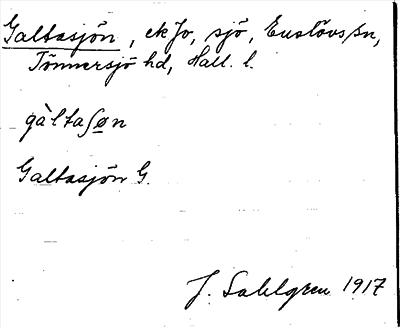 Galtasjön, ek Jo, sjö, Enslövs sn,
Tönnersjö hd, Hall. l.
gàltaʃøn
Galtasjön G.
J. Sahlgren 1917